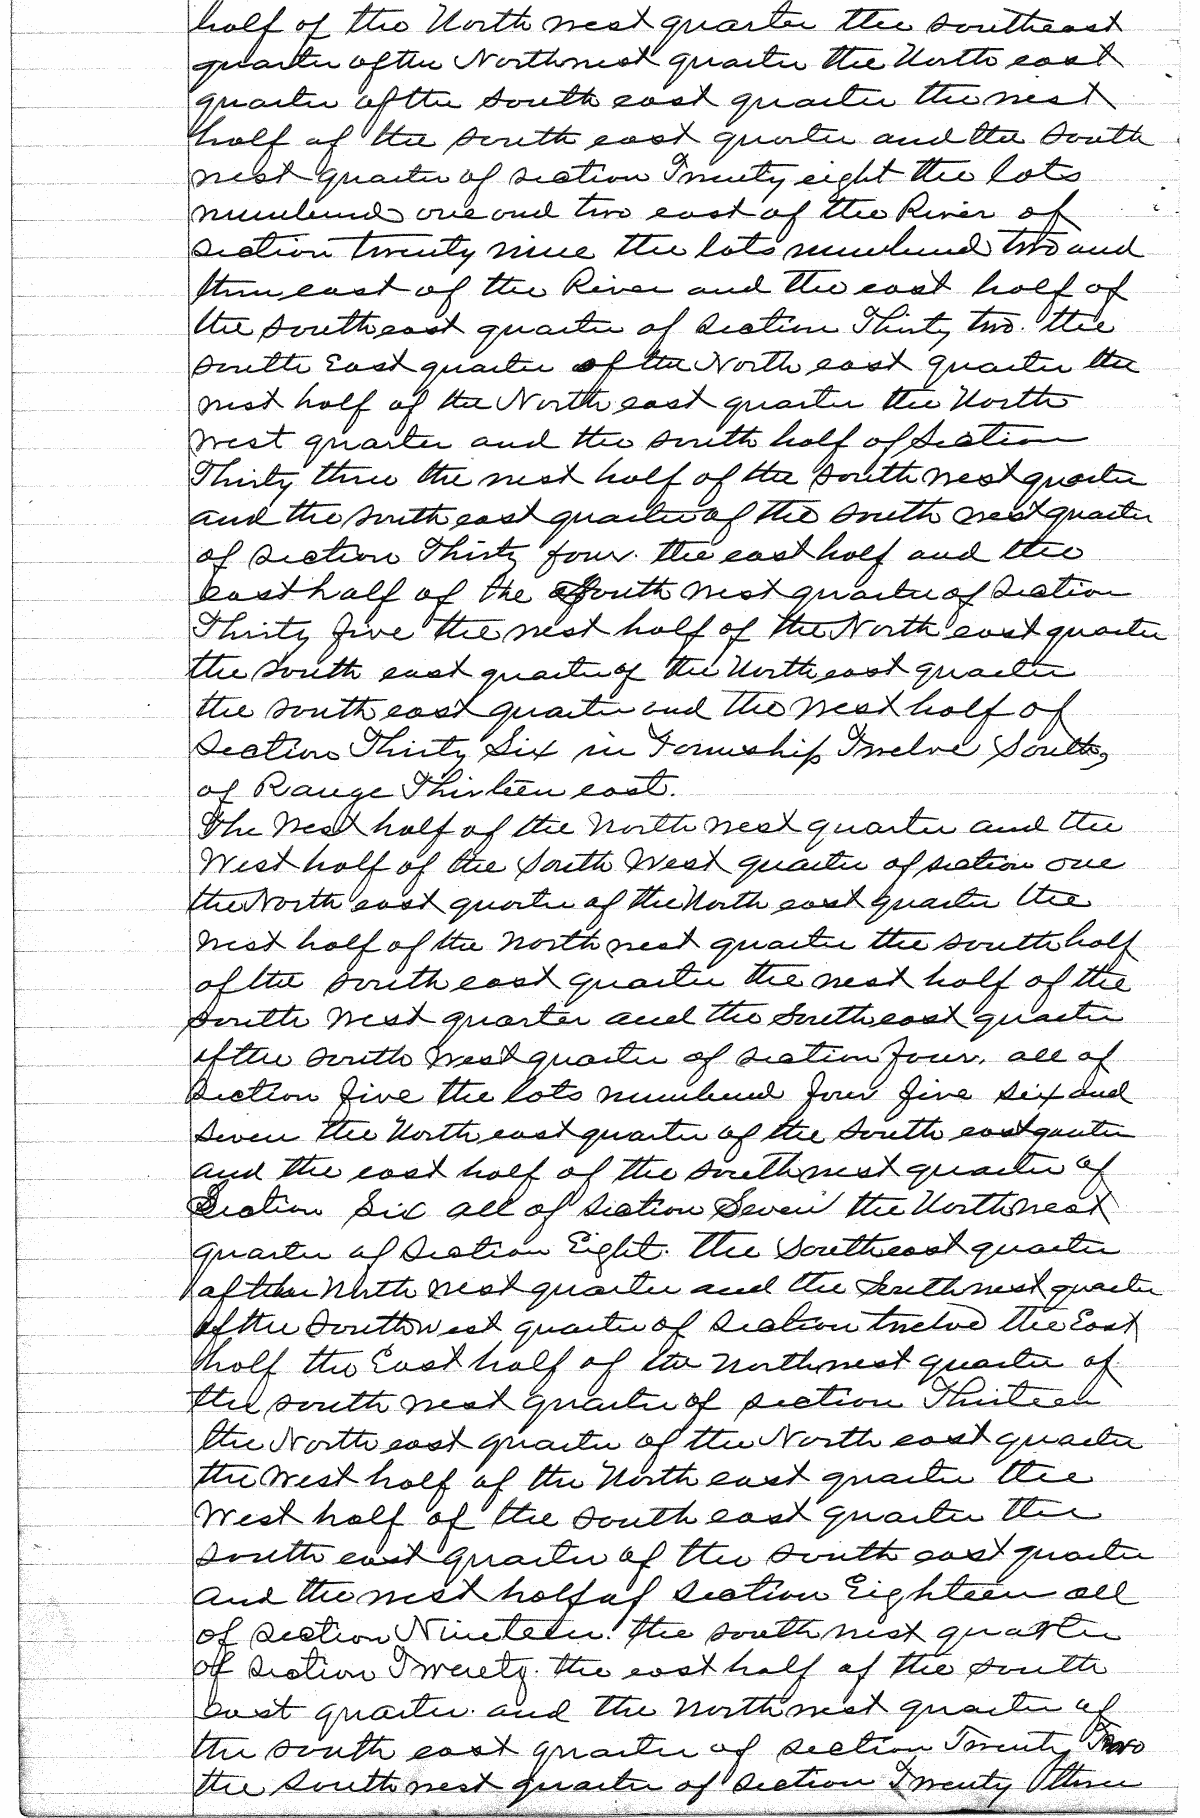 half of the North west quarter the southeast
quarter of the Northwest quarter the North east
quarter of the south east quarter the west
half of the south east quarter and the south
west quarter of section Twenty eight the lots
numbered one and two east of the River of
section twenty nine the lots numbered two and
three east of the River and the east half of
the southeast quarter of section Thirty two. the
south East quarter of the North east quarter the
west half of the North east quarter the North
west quarter and the south half of Section
Thirty three the west half of the south west quarter
and the south east quarter of the south west quarter
of section Thirty four. the east half and the
east half of the South west quarter of section
Thirty five the west half of the North east quarter
the south east quarter of the North east quarter
the south east quarter and the west half of
Section Thirty Six in Township Twelve South,
of Range Thirteen east.
The West half of the North west quarter and the
West half of the South West quarter of section one
the North east quarter of the North east quarter the
west half of the North west quarter the south half
of the south east quarter the west half of the
south West quarter and the South east quarter
of the south West quarter of section four. all of
Section five the lots numbered four five six and
seven the North east quarter of the south east quarter
and the east half of the south west quarter of
Section Six all of section Seven the North west
quarter of Section Eight. the South east quarter
of the North west quarter and the South west quarter
of the South west quarter of section twelve the East
half the East half of the North west quarter of
the south west quarter of section Thirteen
the North east quarter of the North east quarter
the West half of the North east quarter the
West half of the south east quarter the
south east quarter of the south east quarter
and the west half of section Eighteen all
of section Nineteen. the south west quarter
of section Twenty. the east half of the south
east quarter. and the North west quarter of
the south east quarter of section Twenty Two
the South west quarter of section Twenty three